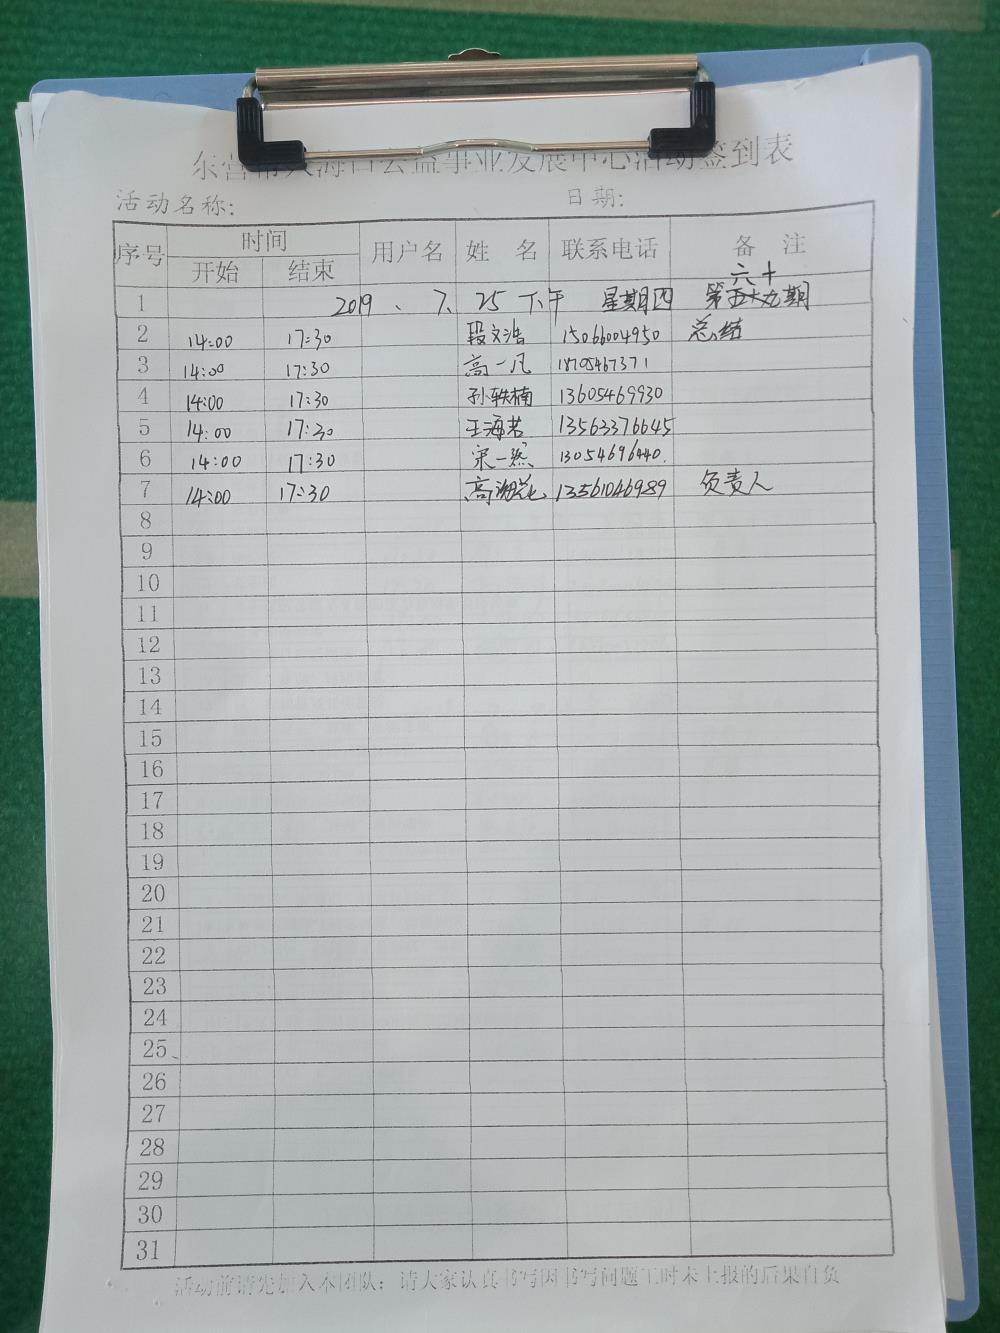 东营市大海口公益事业发展中心活动签到表
活动名称: 日期:
序号 时间 用户名 姓 名 联系电话 备 注
开始 结束
六十
1 2019 、 7、 25 下午 星期四 第五十九期
2 14:00 17:30 段文浩 15066004950 总结
3 14:00 17:30 高一凡 18705467371
4 14:00 17:30 孙轶楠 13605469930
5 14:00 17:30 王海若 13563376645
6 14:00 17:30 宋一然 13054696440.
7 14:00 17:30 高 13561046989 负责人
8
9
10
11
12
13
14
15
16
17
18
19
20
21
22
23
24
25
26
27
28
29
30
31
活动前请先加入本团队；请大家认真书写因书写问题工时未上报的后果自负